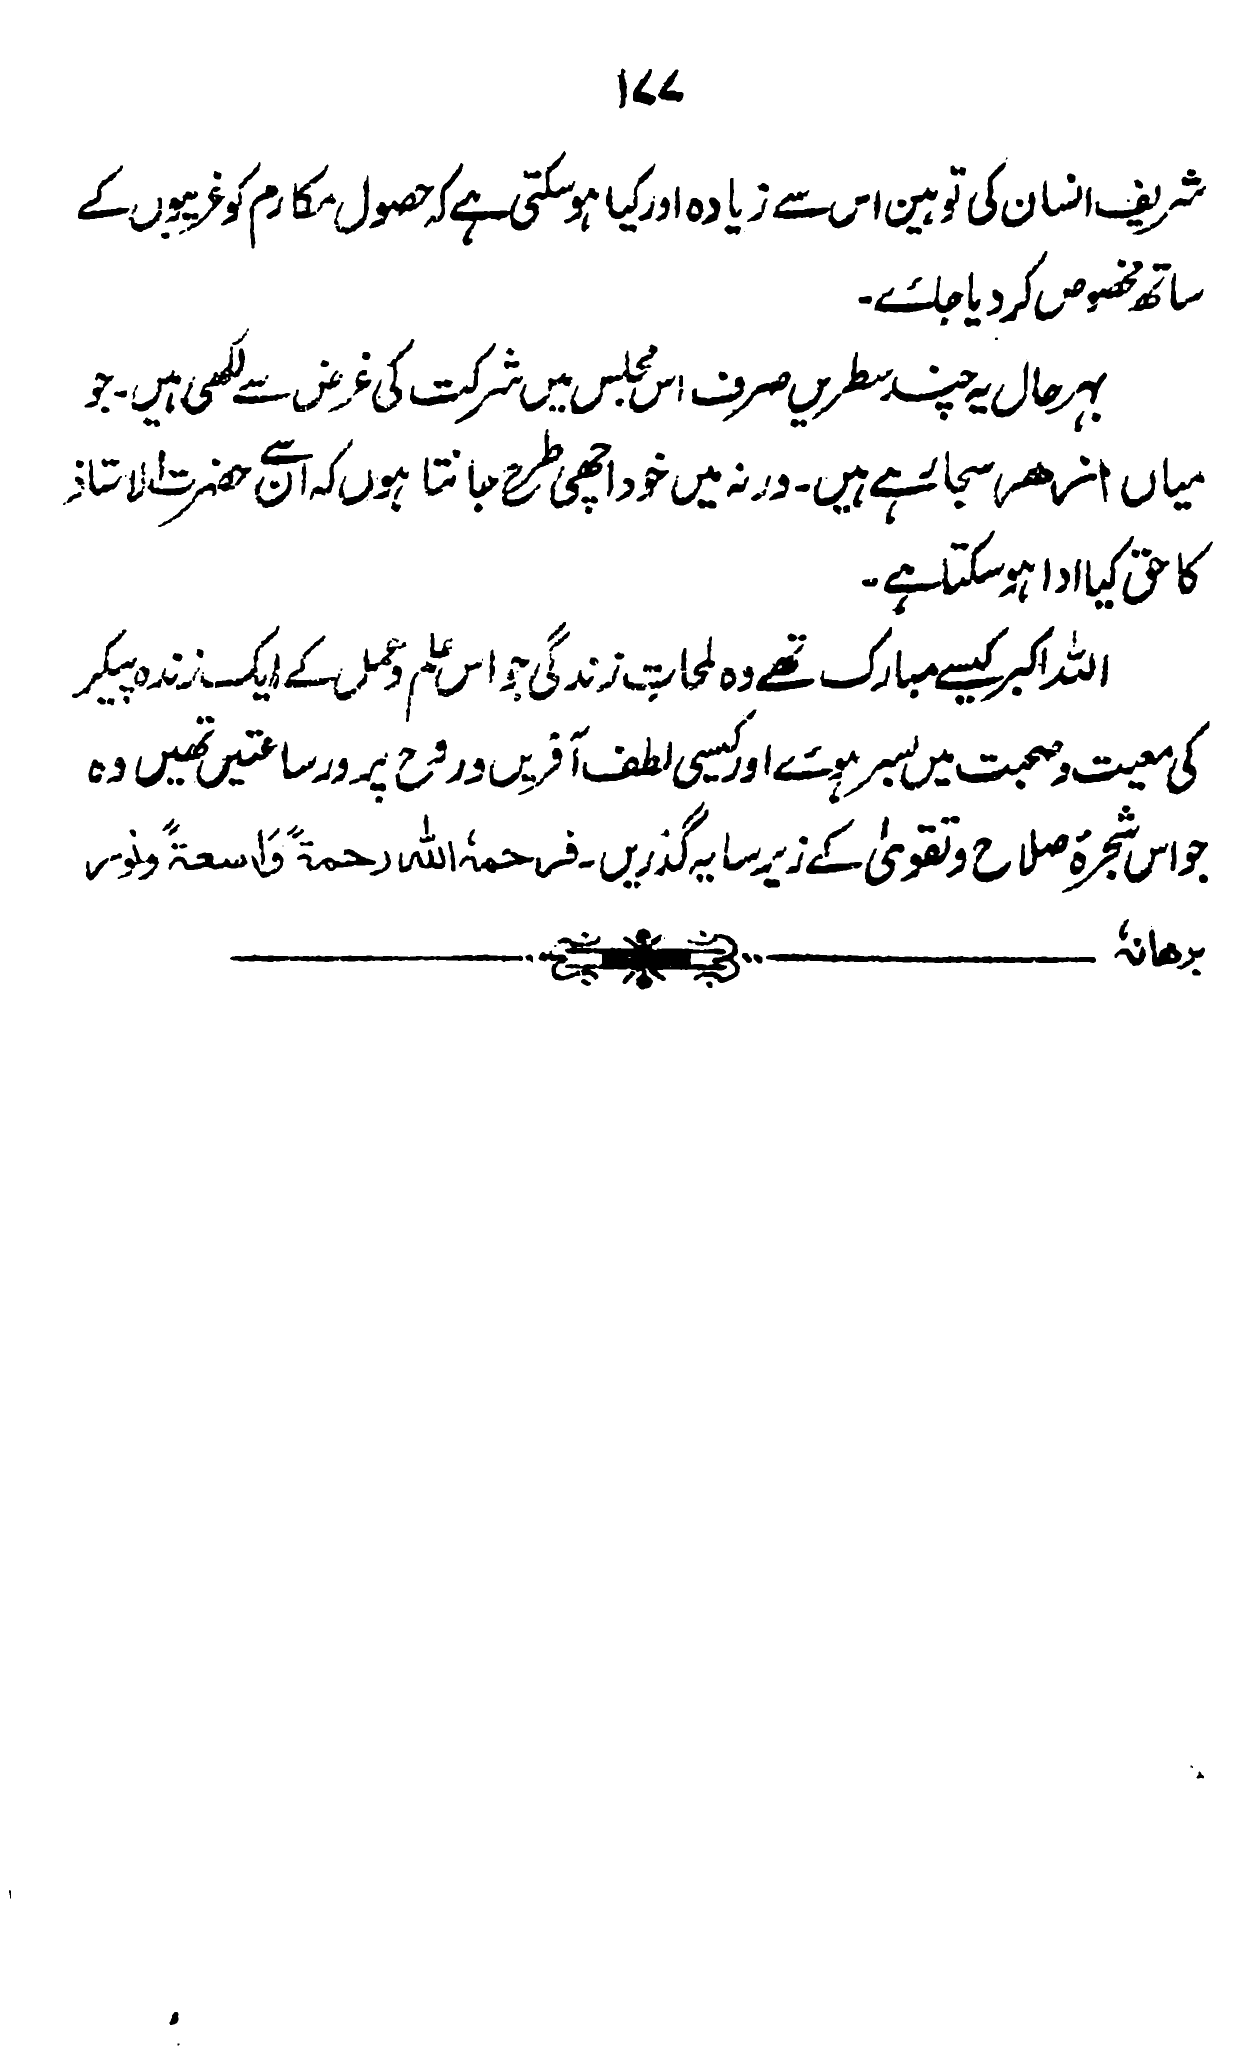 ۱۷۷
شریف انسان کی توہین اس سے زیادہ اور کیا ہوسکتی ہے کہ حصول مکارم کو غریبوں کے
ساتھ مخصوص کر دیا جائے۔
بہرحال یہ چند سطریں صرف اس مجلس میں شرکت کی غرض سے لکھی ہیں۔ جو
میاں ازھر سجائے ہے ہیں۔ ورنہ میں خود اچھی طرح جانتا ہوں کہ ان سے حضرت الاستاذ
کا حق کیا ادا ہو سکتا ہے۔
اللہ اکبر کیسے مبارک تھے وہ لمحاتِ زندگی جو اس علم و عمل کے ایک زندہ پیکر
کی معیت و صحبت میں بسر ہوئے اور کیسی لطف آفریں و روح پرور ساعتیں تھیں وہ
جو اس شجرۂ صلاح و تقویٰ کے زیر سایہ گذریں۔ فرحمہٗ اللہ رحمۃً وَاسعۃً و نور
برھانہٗ